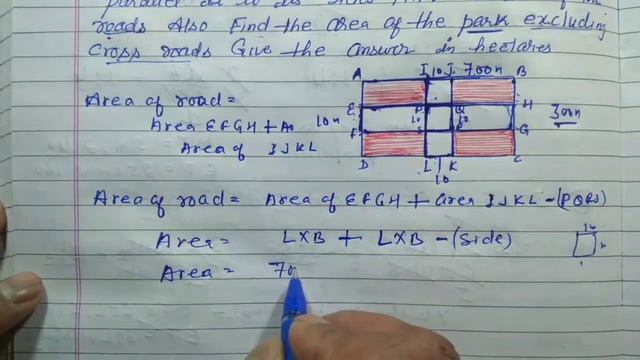 roads Also Find the area of the park excluding
Cross roads Give the answer in hectares
A I 10 J 700m B
Area of road =
E P Q H
10m 10 10 300m
Area EFGH + Ao
F S R G
Area of IJKL
D L K C
10
Area of road = Area of EFGH + area IJKL - (PQRS)
10
Area = L×B + L×B - (Side)
Area = 70